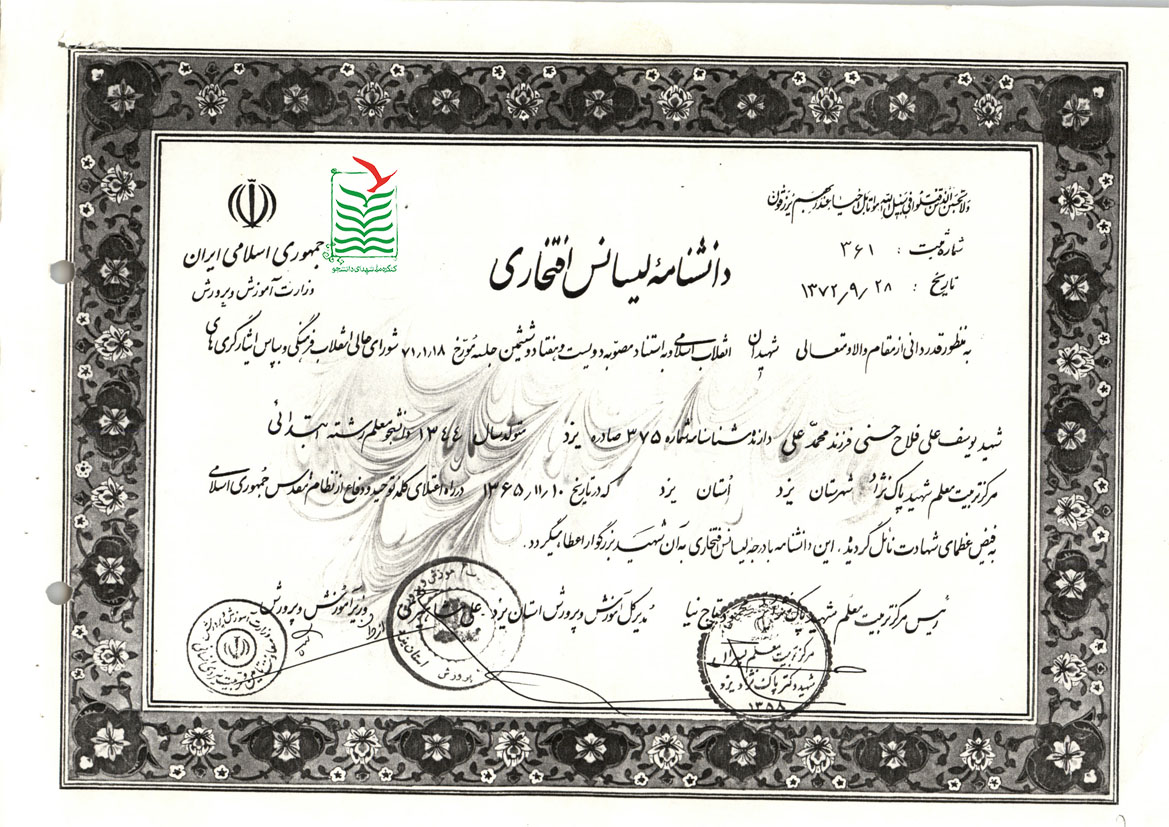 ولا تحسبن الذین قتلوا فی سبیل الله امواتا بل احیاء عند ربهم یرزقون
شماره ثبت : ۳۶۱
تاریخ : ۱۳۷۲/۹/۲۸
جمهوری اسلامی ایران
وزارت آموزش و پرورش
کنگره ملی شهدای دانشجو
دانشنامهٔ لیسانس افتخاری
به منظور قدردانی از مقام والا و متعالی شهیدان انقلاب اسلامی و به استناد مصوبه دویست و هفتاد و ششمین جلسه مورّخ ۷۱/۱/۱۸ شورای عالی انقلاب فرهنگی و بپاس ایثارگری های
شهید یوسف علی فلاح حسنی فرزند محمد علی دارنده شناسنامه شماره ۳۷۵ صادره یزد متولد سال ۱۳۴۴ دانشجو معلم رشته ابتدائی
مرکز تربیت معلم شهید پاک نژاد شهرستان یزد استان یزد که در تاریخ ۱۳۶۵/۱۱/۱۰ در راه اعتلای کلمه توحید و دفاع از نظام مقدس جمهوری اسلامی
به فیض عظمای شهادت نائل گردید، این دانشنامه با درجه لیسانس افتخاری به آن شهید بزرگوار اعطا میگردد.
رئیس مرکز تربیت معلّم شهید پاک نیا
مدیر کل آموزش و پرورش استان یزد علی
وزیر آموزش و پرورش
مرکز تربیت معلم پسران
شهید دکتر پاک نژاد یزد
۱۳۵۸
آموزش و پرورش
استان یزد
وزارت آموزش و پرورش